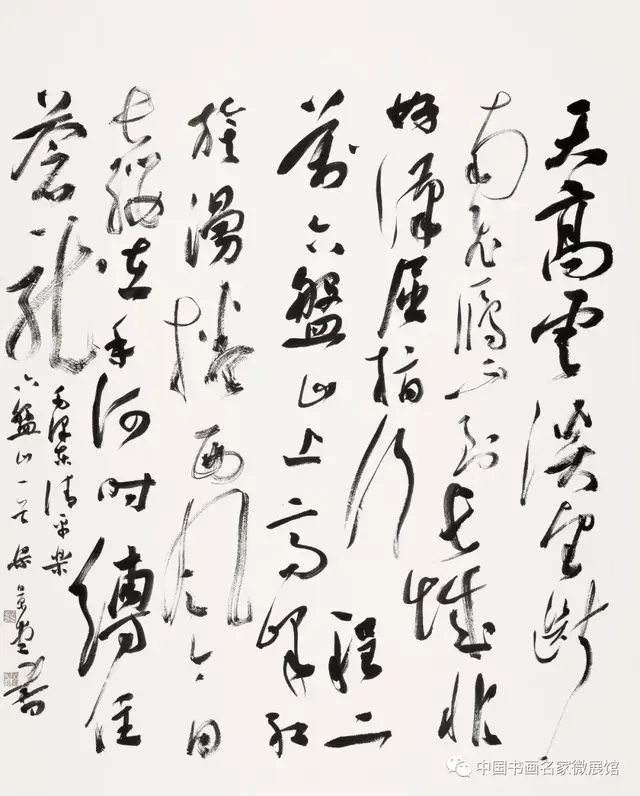 天高雲淡望斷
南飛雁不到長城非
好漢屈指行程二
萬六盤山上高峰紅
旗漫捲西風今日
長纓在手何時縛住
蒼龍
毛澤東清平樂
六盤山一首 書
中国书画名家微展馆